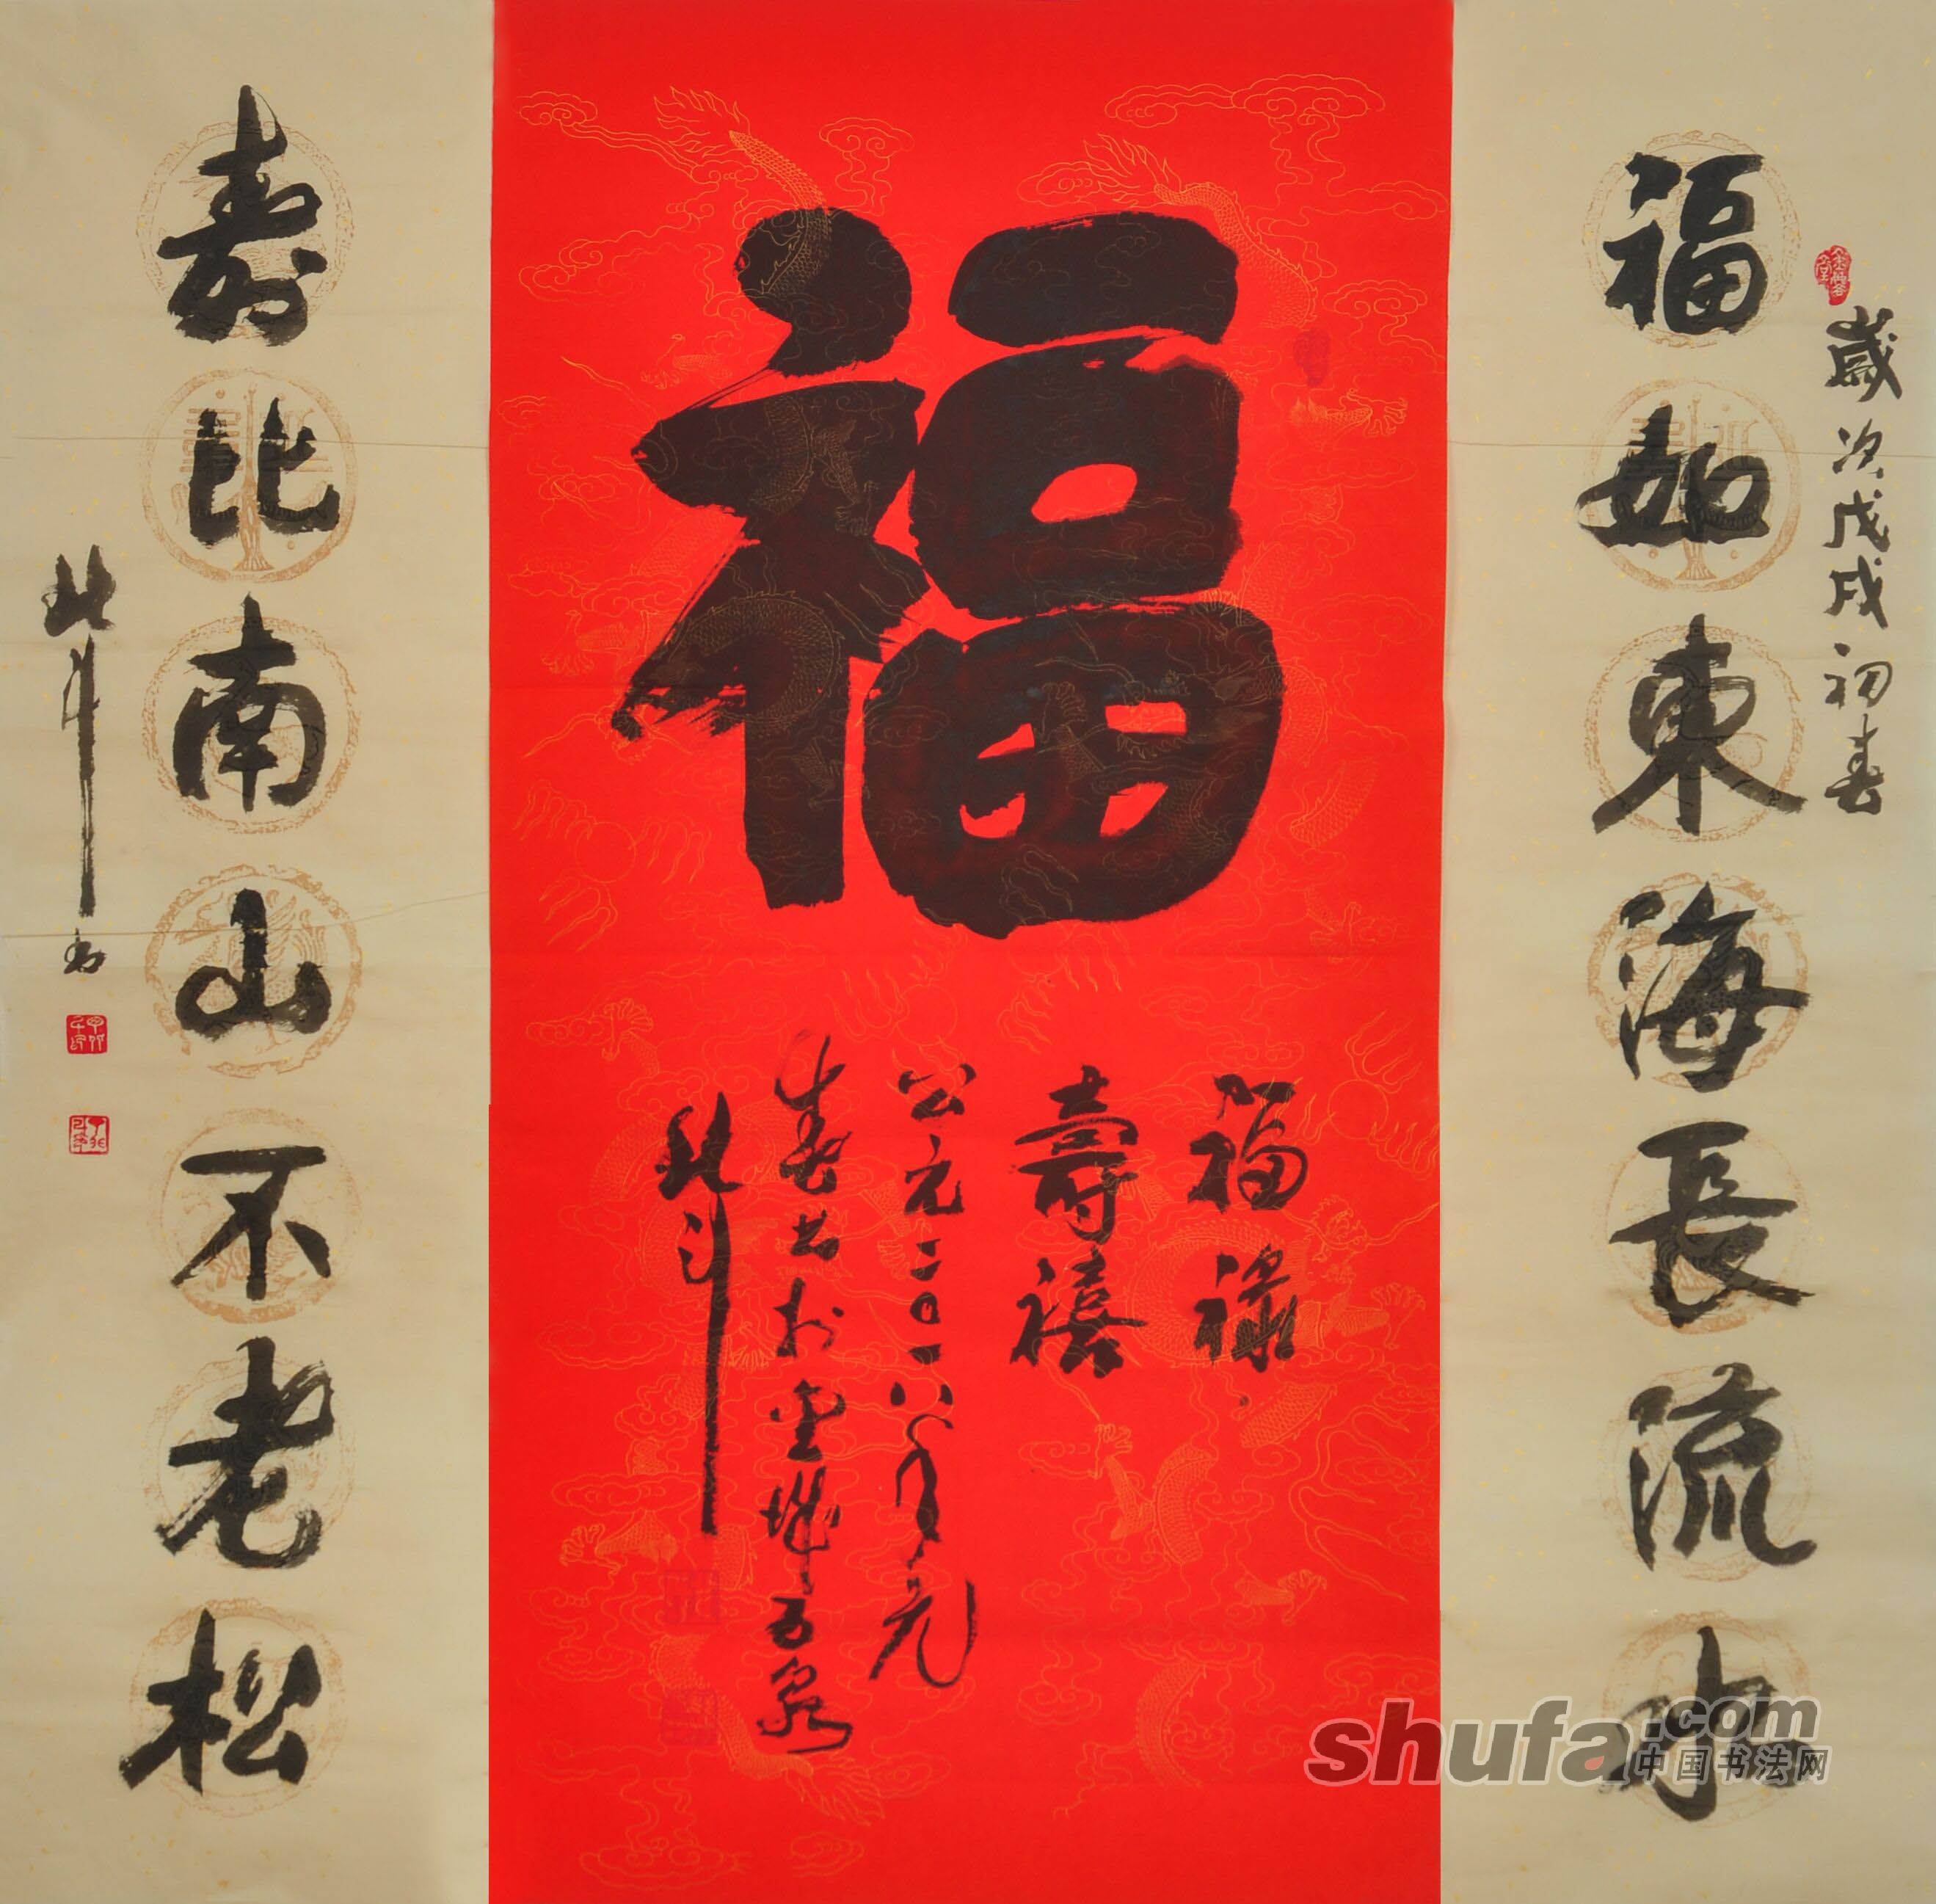 歲次戊戌初春
福如東海長流水
福
福祿
壽禧
公元二〇一八年元
春书於金城五泉
北斗
寿比南山不老松
北斗书
shufa.com
中国书法网